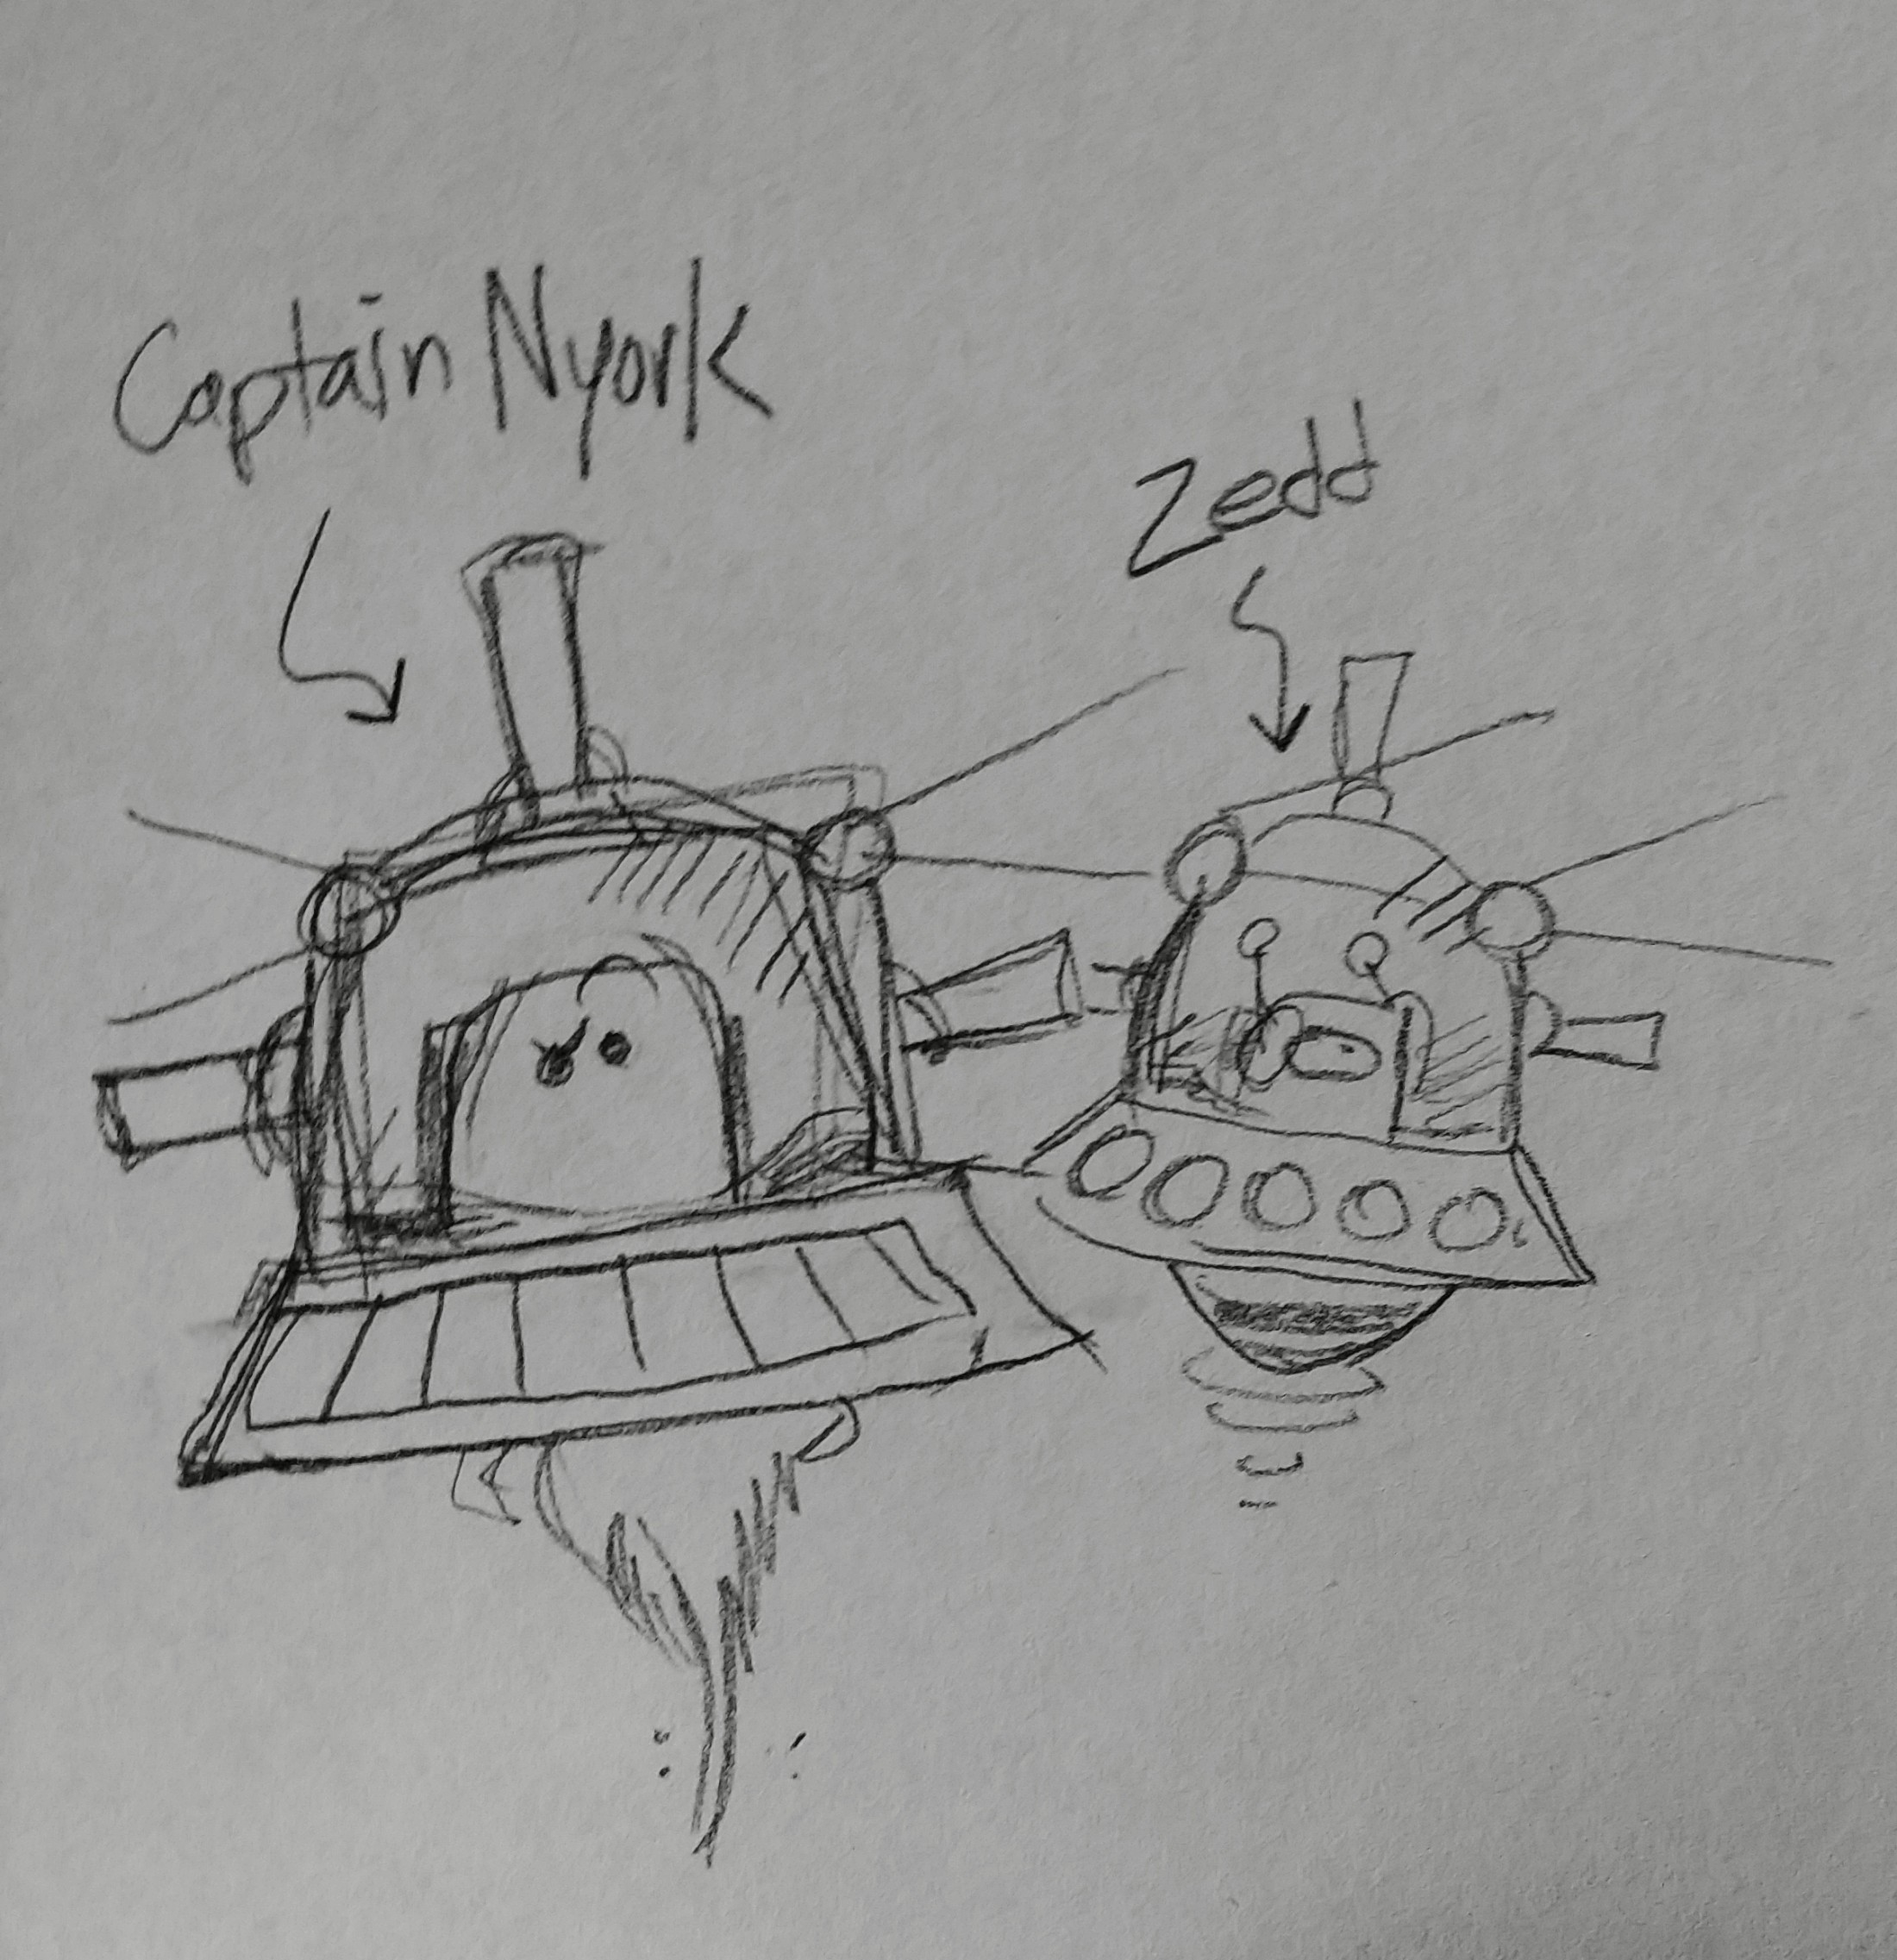 Captain Nyork
Zedd